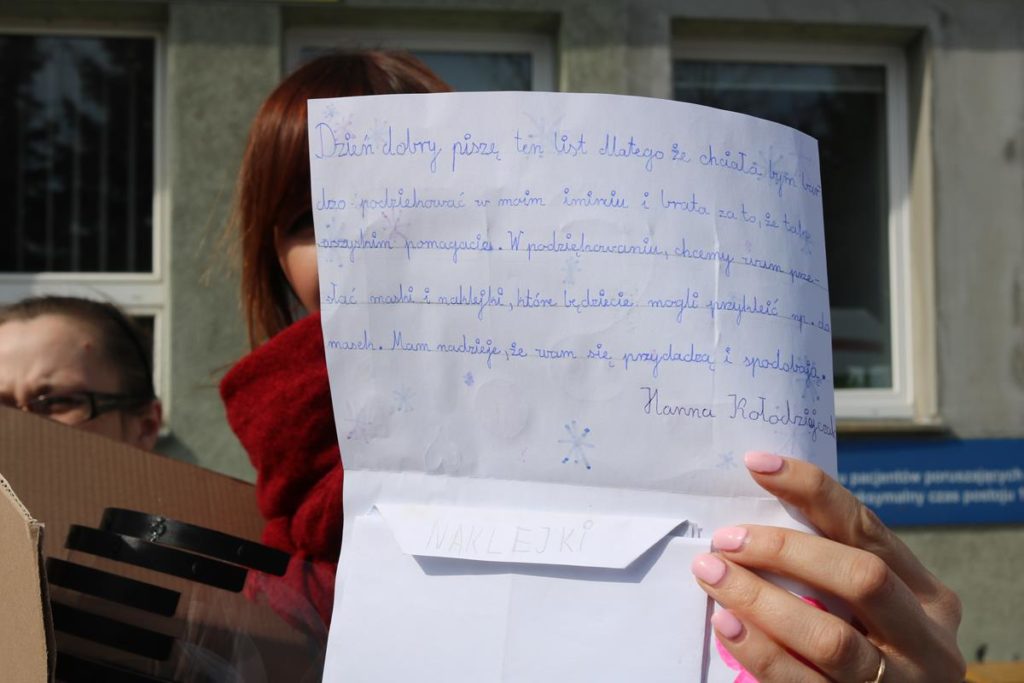 Dzień dobry piszę ten list dlatego że chciała bym bar
dzo podziehować w moim iminiu i brata za to, że tak
wszystkim pomagacie. W podziękowaniu, chcemy wam prze-
słać maski i naklejki, które będziecie mogli przykleić np. do
masek. Mam nadzieje, że wam się przydadzą i spodobają.
Hanna Kołodziejczak
NAKLEJKI
pacjentów poruszających
czas postoju